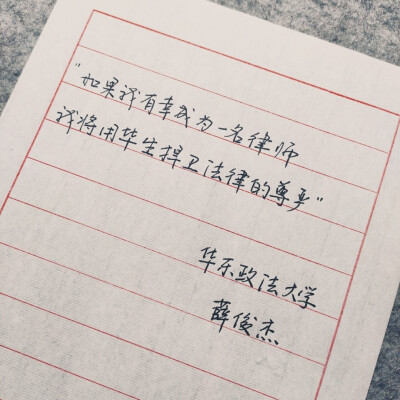 “如果我有幸成为一名律师
我将用毕生捍卫法律的尊严”
华东政法大学
薛俊杰